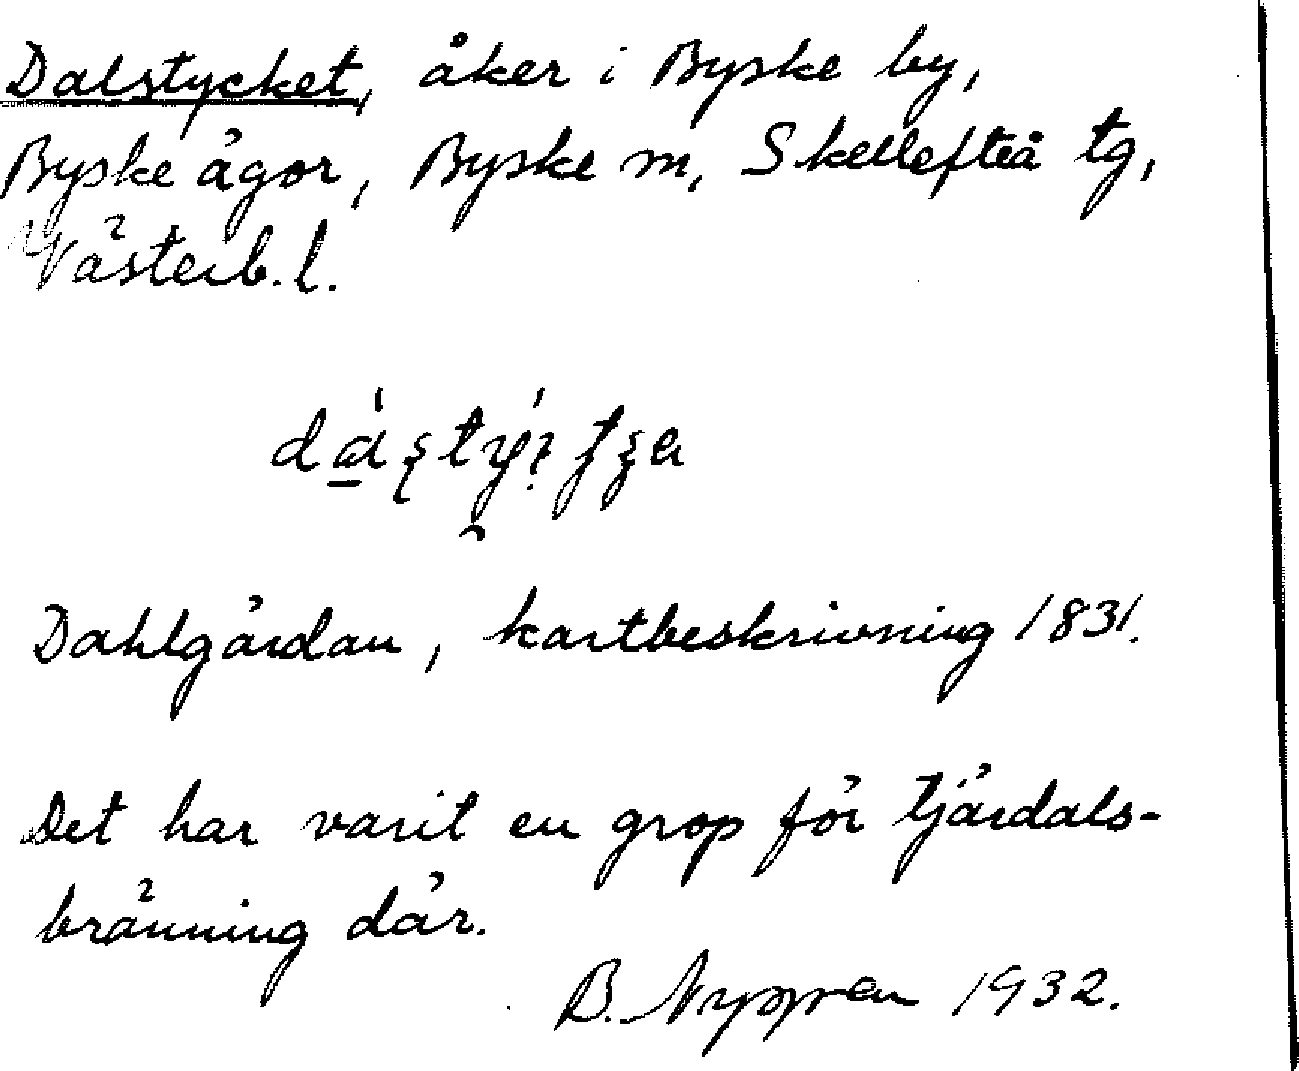 Dalstycket, åker i Byske by,
Byske ägor, Byske sn, Skellefteå tg,
Västerb. l.
Dahlgärdan, kartbeskrivning 1831.
Det har varit en grop för tjärdals-
bränning där.
B. Nygren 1932.